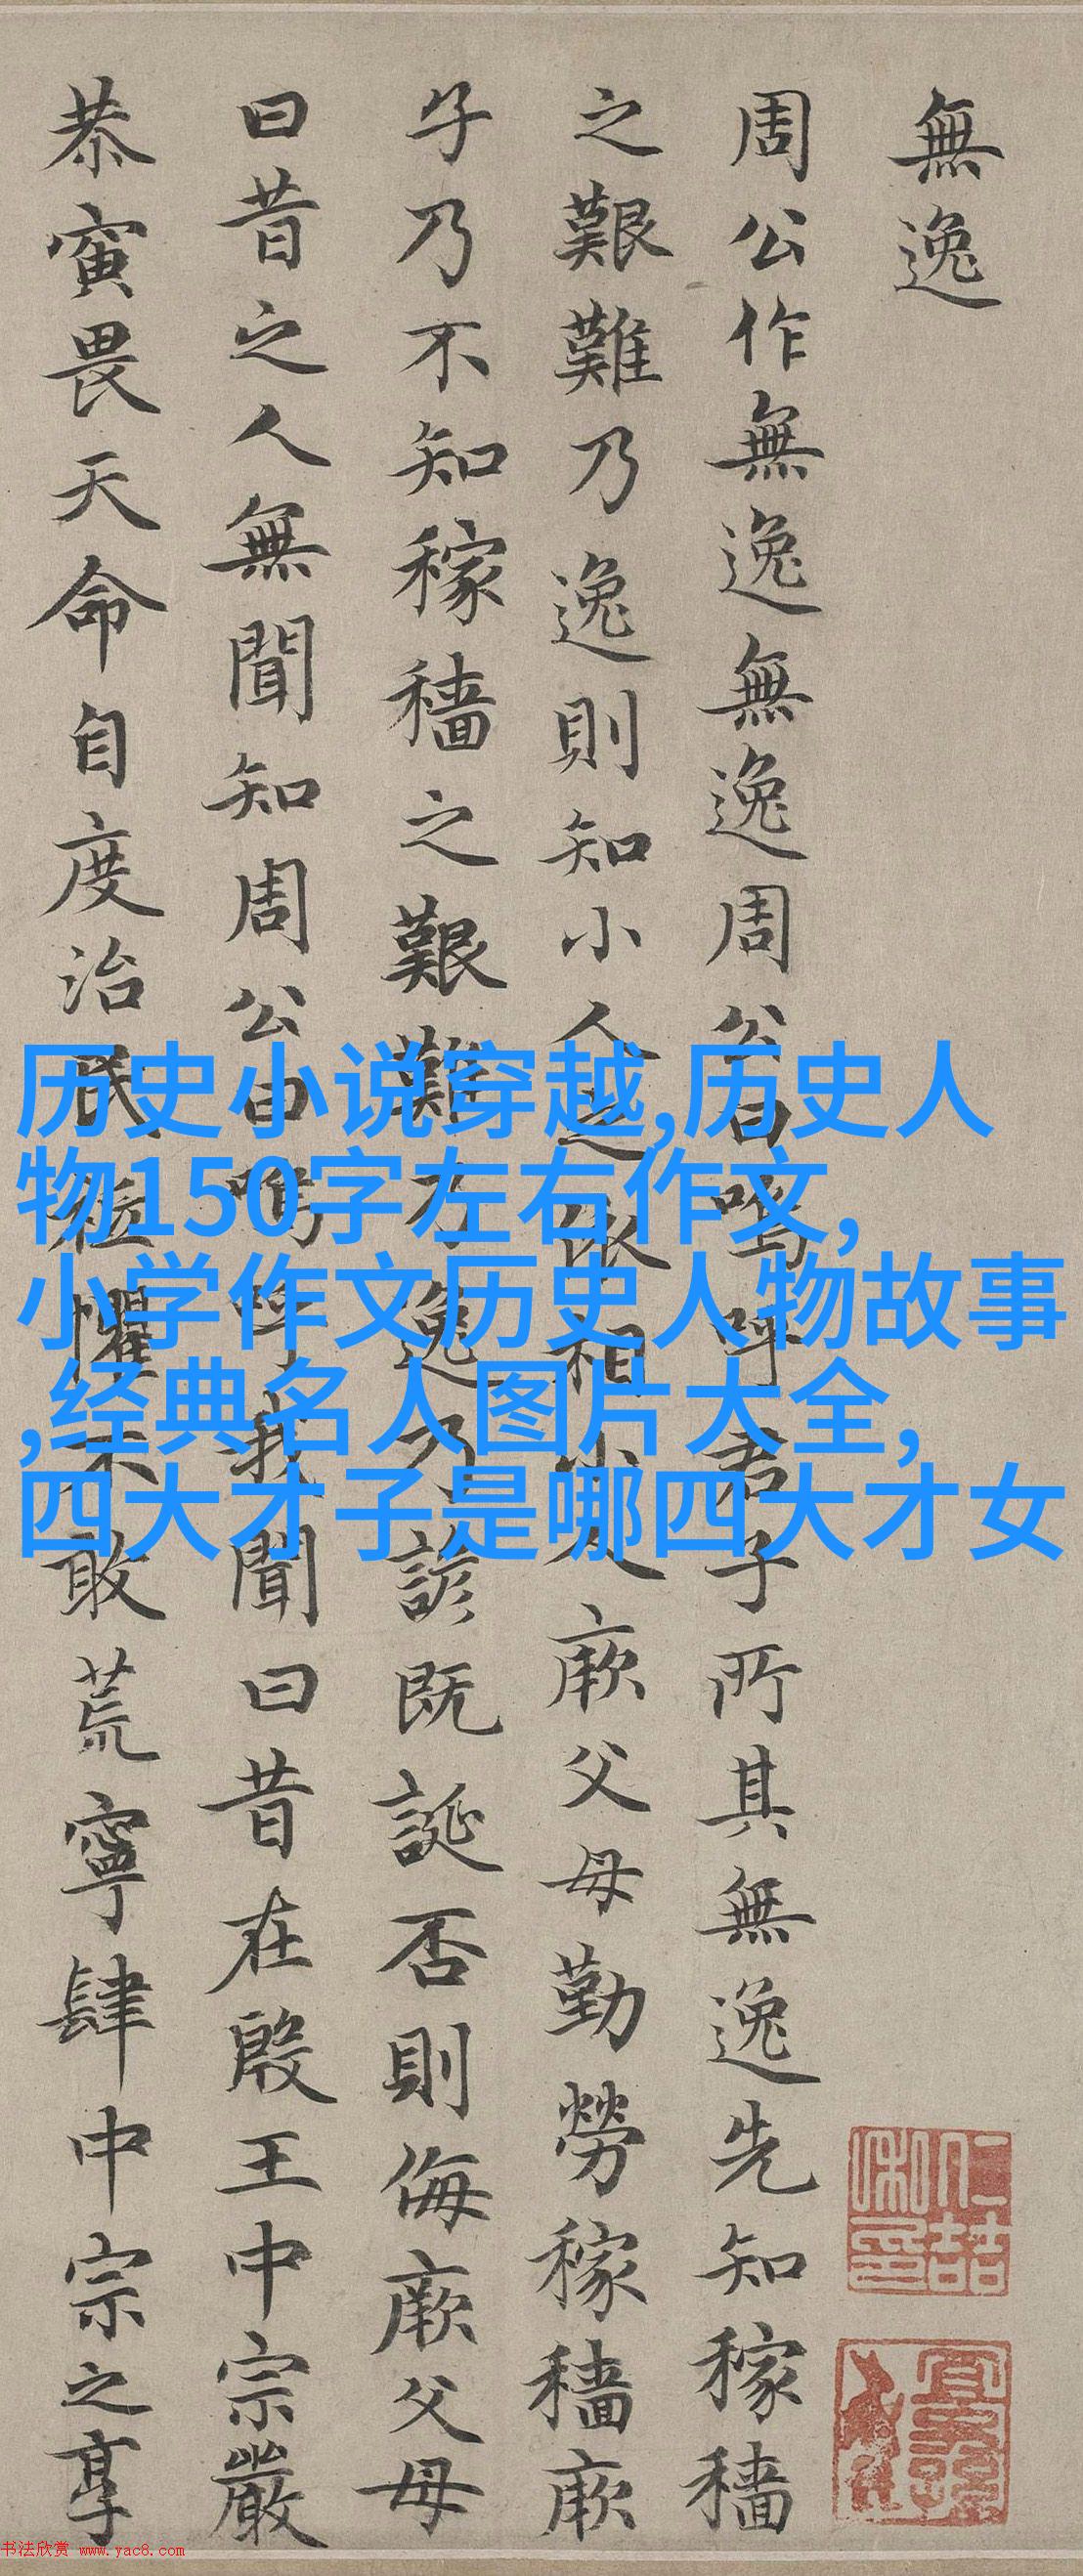 無逸
周公作無逸無逸周公曰嗚呼君子所其無逸先知稼穡
之艱難乃逸則知小人之依相小人厥父母勤勞稼穡厥
子乃不知稼穡之艱難乃逸乃諺既誕否則侮厥父母
曰昔之人無聞知周公曰嗚呼我聞曰昔在殷王中宗嚴
恭寅畏天命自度治民祗懼不敢荒寧肆中宗之享
历史小说穿越,历史人
物150字左右作文,
小学作文历史人物故事
,经典名人图片大全,
四大才子是哪四大才女
书法欣赏 www.yac8.com